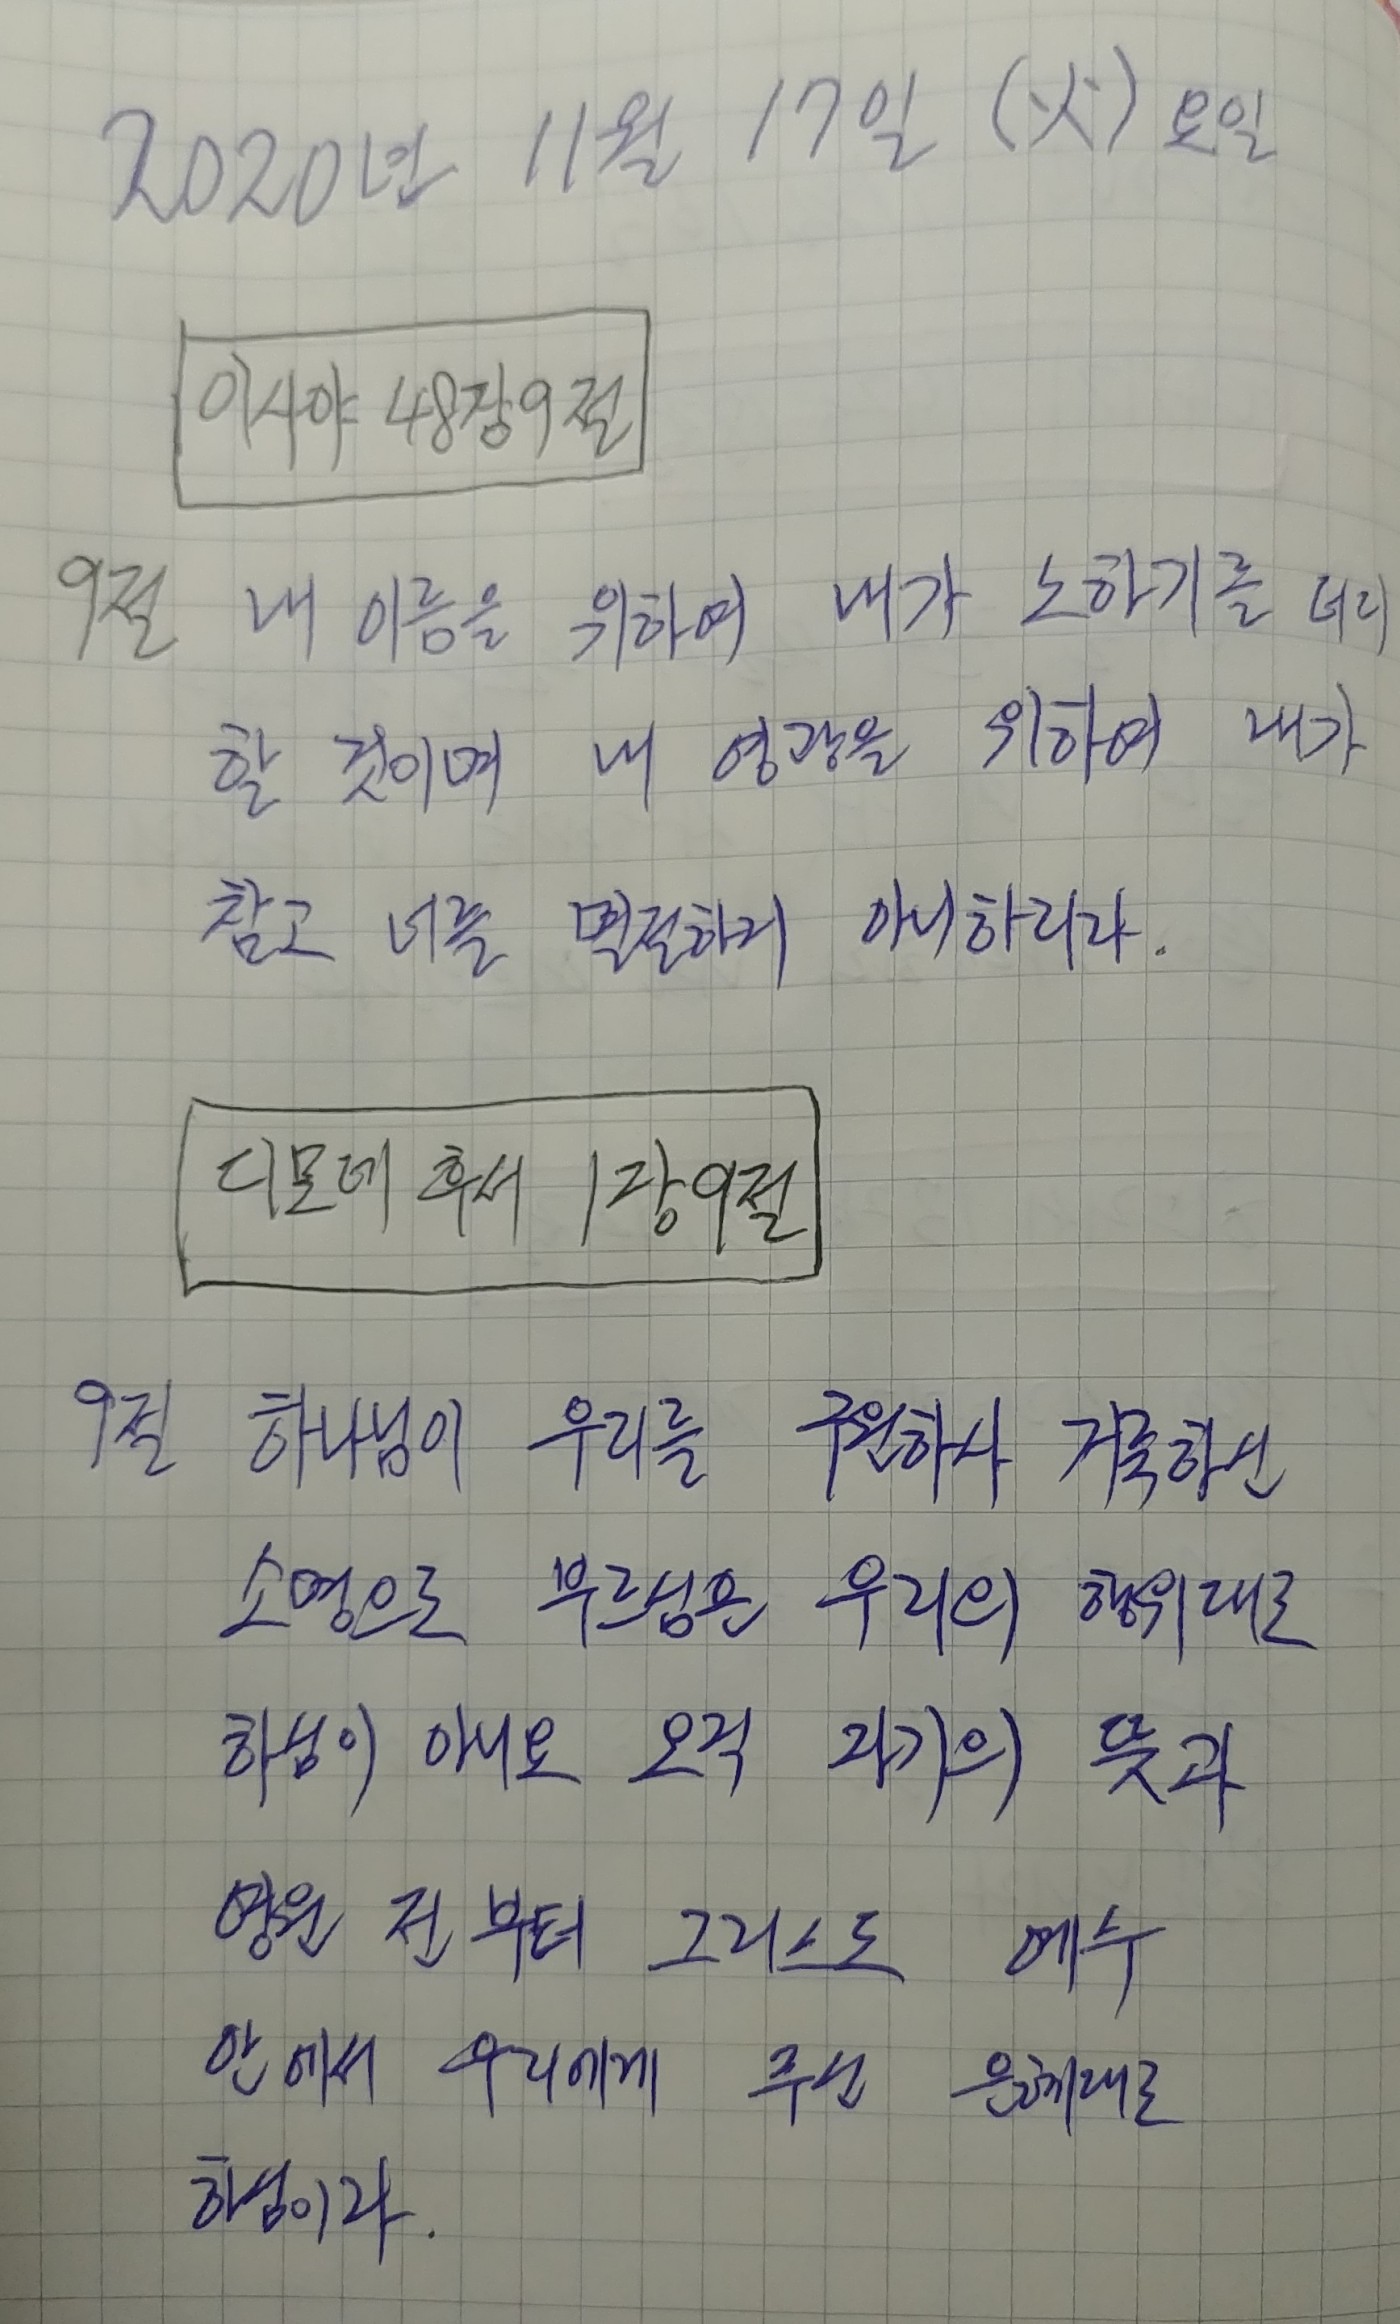 2020년 11월 17일 (火) 요일
이사야 48장9절
9절 내 이름을 위하여 내가 노하기를 더디
할 것이며 내 영광을 위하여 내가
참고 너를 멸절하지 아니하리라.
디모데 후서 1장9절
9절 하나님이 우리를 구원하사 거룩하신
소명으로 부르심은 우리의 행위대로
하심이 아니요 오직 자기의 뜻과
영원 전 부터 그리스도 예수
안에서 우리에게 주신 은혜대로
하심이라.